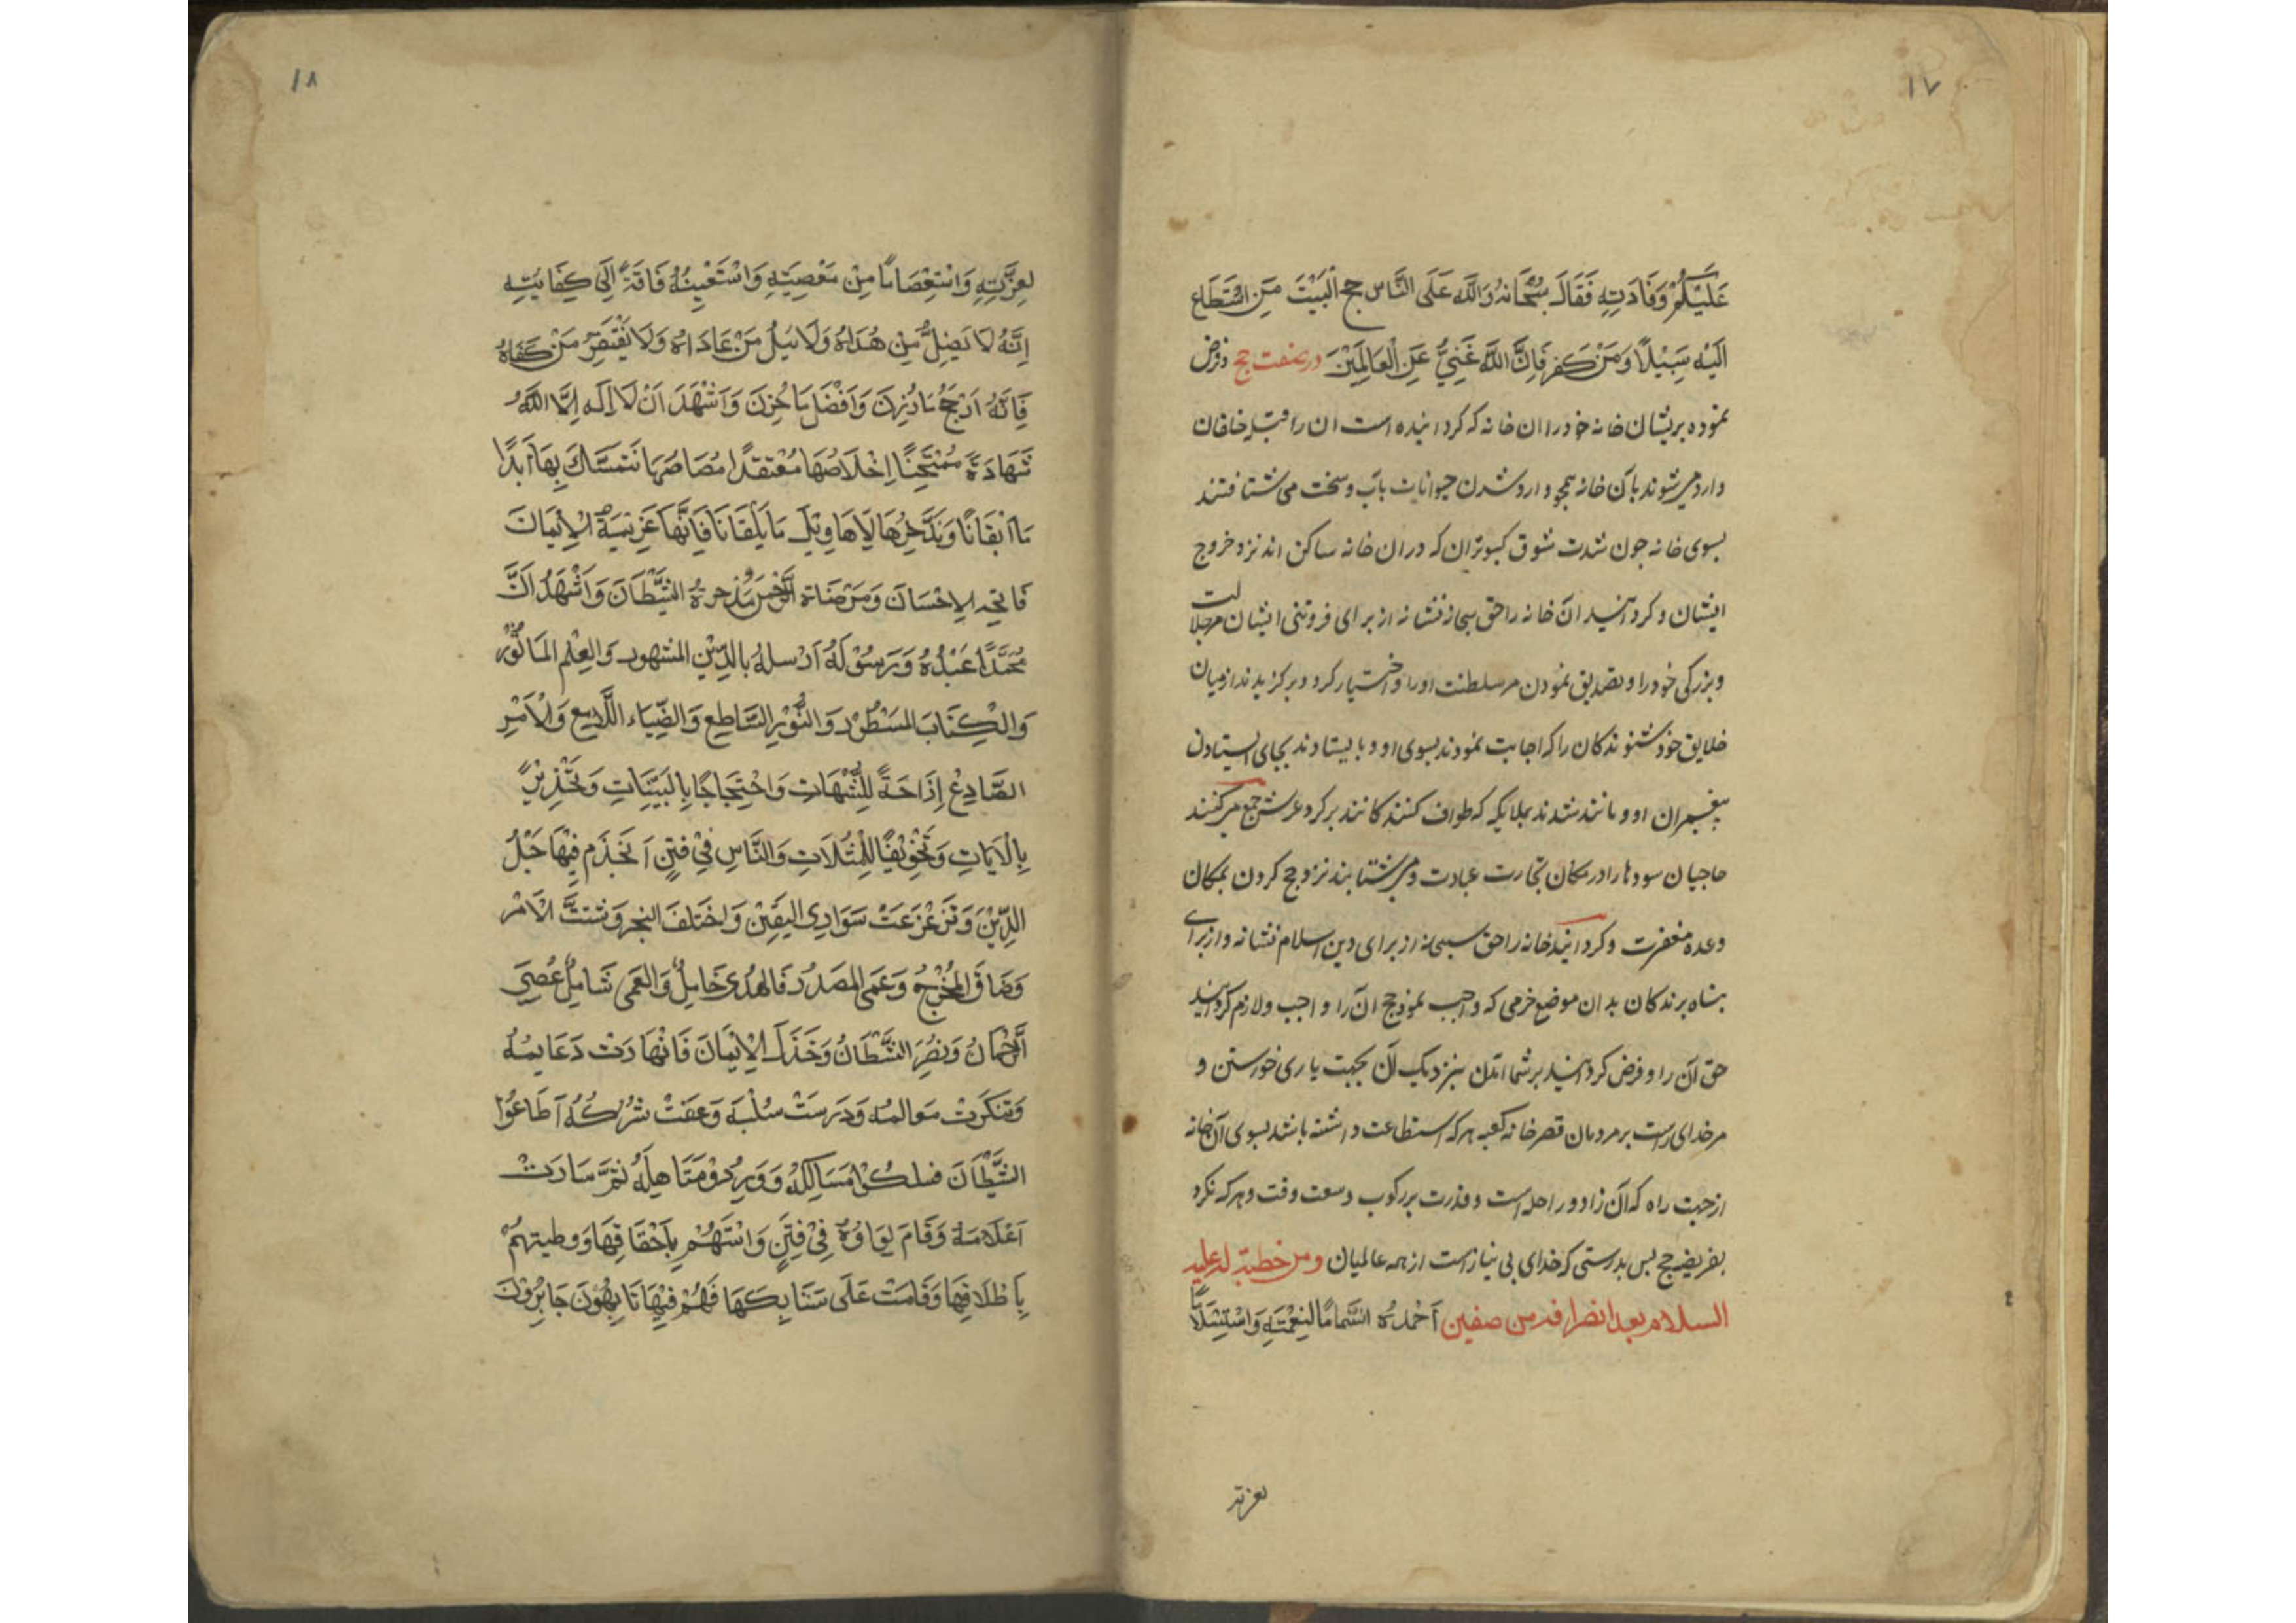 ١٧
عَلَيْكُمْ وَفَادَتِهِ فَقَالَ سُبْحَانَهُ وَالله عَلَى النَّاسِ حج الْبَيْتَ مَنِ اسْتَطَاع
اِلَيْهِ سَبِيْلًا وَمَنْ كَفر فَاِنَّ اللهَ غَنِيٌّ عَنِ الْعَالَمِيْنَ در صفت حج و فرض
نموده بریشان خانه خود را ان خانه که کردانیده است ان را قبله خلقان
وارد میشوند بآن خانه همچو وارد شدن حیوانات بآب و سخت می شتافتند
بسوی خانه چون شدت شوق کبوتران که در ان خانه ساکن اند نزد خروج
ایشان و کردانید ان خانه را حق سبحانه نشانه از برای فروتنی ایشان مر جلالت
و بزرکی خود را و تصدیق نمودن مر سلطنت او را و اختیار کرد و برکزیدند از میان
خلایق خود شنوندکان را که اجابت نمودند بسوی او و بایستادند بجای ایستادن
پیغمبران او و مانند شدند بملایکه که طواف کنندکانند بر کرد عرش جمع میکنند
حاجیان سودها را در مکان تجارت عبادت و میشتابند نزد حج کردن بمکان
وعده مغفرت و کردانید خانه را حق سبحانه از برای دین اسلام نشانه و از برای
پناه برندکان بدان موضع حرمی که واجب نمود حج ان را و اجب و لازم کردانید
حق آن را و فرض کردانید بر شما آمدن بنزدیک آن بجهت یاری خواستن و
مر خدای راست بر مردمان قصر خانه کعبه هر که استطاعت داشته باشد بسوی آن خانه
از جهت راه که آن زاد و راحله است و قدرت بر رکوب و سعت وقت و هر که نکرد
بفریضه حج پس بدرستی که خدای بی نیازاست از همه عالمیان ومن خطبة له عليه
السلام بعد انصرافه من صفين اَحْمَدُهُ استماما لنِعْمَتِهِ وَاسْتِسْلَامًا
لعزته
١٨
لعِزَّتِهِ وَاسْتِعْصَامًا مِنْ مَعْصِيَتِهِ وَاسْتَعْيِنُهُ فَاقَةً اِلَى كِفَايَتِهِ
اِنَّهُ لَا يَضِلُّ مِنْ هُدَاهُ وَلَا يَئِلُ مَنْ عَادَاهُ وَلَا يَفْتَقِرُ مَنْ كَفَاهُ
فَاِنَّهُ اَرْجَحُ مَا وُزِنَ وَاَفْضَلُ مَا خُزِنَ وَاَشْهَدَ اَنْ لَا اِلَهِ اِلَّا اللهُ
شَهَادَةً مُمْتَحَنًا اِخْلَاصُهَا مُعْتَقَدًا مُصَاصُهَا نَتَمَسَّكَ بِهَا اَبَدًا
مَا اَبْقَانًا وَنَدَّخِرُهَا لِاَهَاوِيْلِ مَا يَلْقَانَا فَاِنَّهَا عَزِيْمَةُ الْاِيْمَانَ
فَاتحه الاِحْسَانَ وَمَرْضَاة الرَّحْمنِ وَمَدْحرةُ الشَّيْطَانَ وَاَشْهَدُ اَنَّ
مُحَمَّدًا عَبْدُهُ وَرَسُوْلَهُ اَرْسلهُ بالدِّيْنِ المشهور وَالعِلْمِ المَاثُوْر
وَالكِتَابَ المَسْطُوْر وَالنُّوْرِ السَّاطِعِ وَالضِّيَاء اللَّامِعِ وَالْاَمْرِ
الصَّادِعْ اِزَاحَةً لِلشُّبْهَاتِ وَاحْتِجَاجًا بِالْبَيِّنَاتِ وَتَحْذِيْرًا
بِالْاَيَاتِ وَتَخْوِيْفًا لِلْمَثُلَاتِ وَالنَّاسِ فِيْ فتِنٍ اَنْخَذَم فِيْهَا حَبْلُ
الدِّيْنَ وَتَزَعْزَعَتْ سَوَارِى اليَقِيْنِ وَاخْتَلَفَ النجر وَتشتتَّ الْاَمْر
وَضَاقَ الْمَخْرَجُ وَعَمِىَ المَصْدَرُ فَالهُدٰى خَامِلٌ وَالعَمٰى شَامِلٌ عُصِىَ
الرَّحْمَانُ وَنُصِرَ الشَّيْطَانُ وَخَذَلَ الْاِيْمَانَ فَانْهَارَتْ دَعَايمُهُ
وَتنكَرتْ مَعَالمهُ وَدَرَسَتْ سُبُلهَ وَعَفَتْ شُرُكُهُ اَطَاعُوْا
الشَّيْطَانَ فسلكُوْا مَسَالِكَهُ وَوَرِدُوْ مَنَاهِلَهُ بهم سَارَتْ
اَعْلَامَهُ وَقَامَ لِوَاوُهُ فِيْ فِتَنٍ دَاسَتهُمْ بِاَخْفَافِهَا وَوطيتهُمْ
بِاَظْلَافِهَا وَقَامَتْ عَلَى سَنَابِكَهَا فَهُمْ فِيْهَا تَايِهُوْنَ جَايرُوْنَ